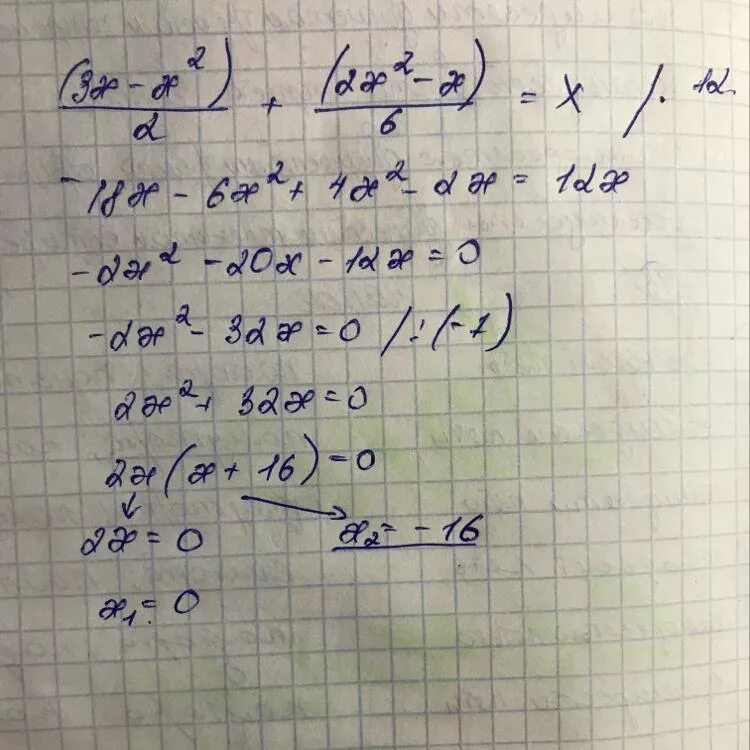 (3x - x²)/2 + (2x² - x)/6 = x /· 12.
- 18x - 6x² + 4x² - 2x = 12x
-2x² - 20x - 12x = 0
-2x² - 32x = 0 /:(-1)
2x² + 32x = 0
2x(x + 16) = 0
2x = 0 x₂ = -16
x₁ = 0